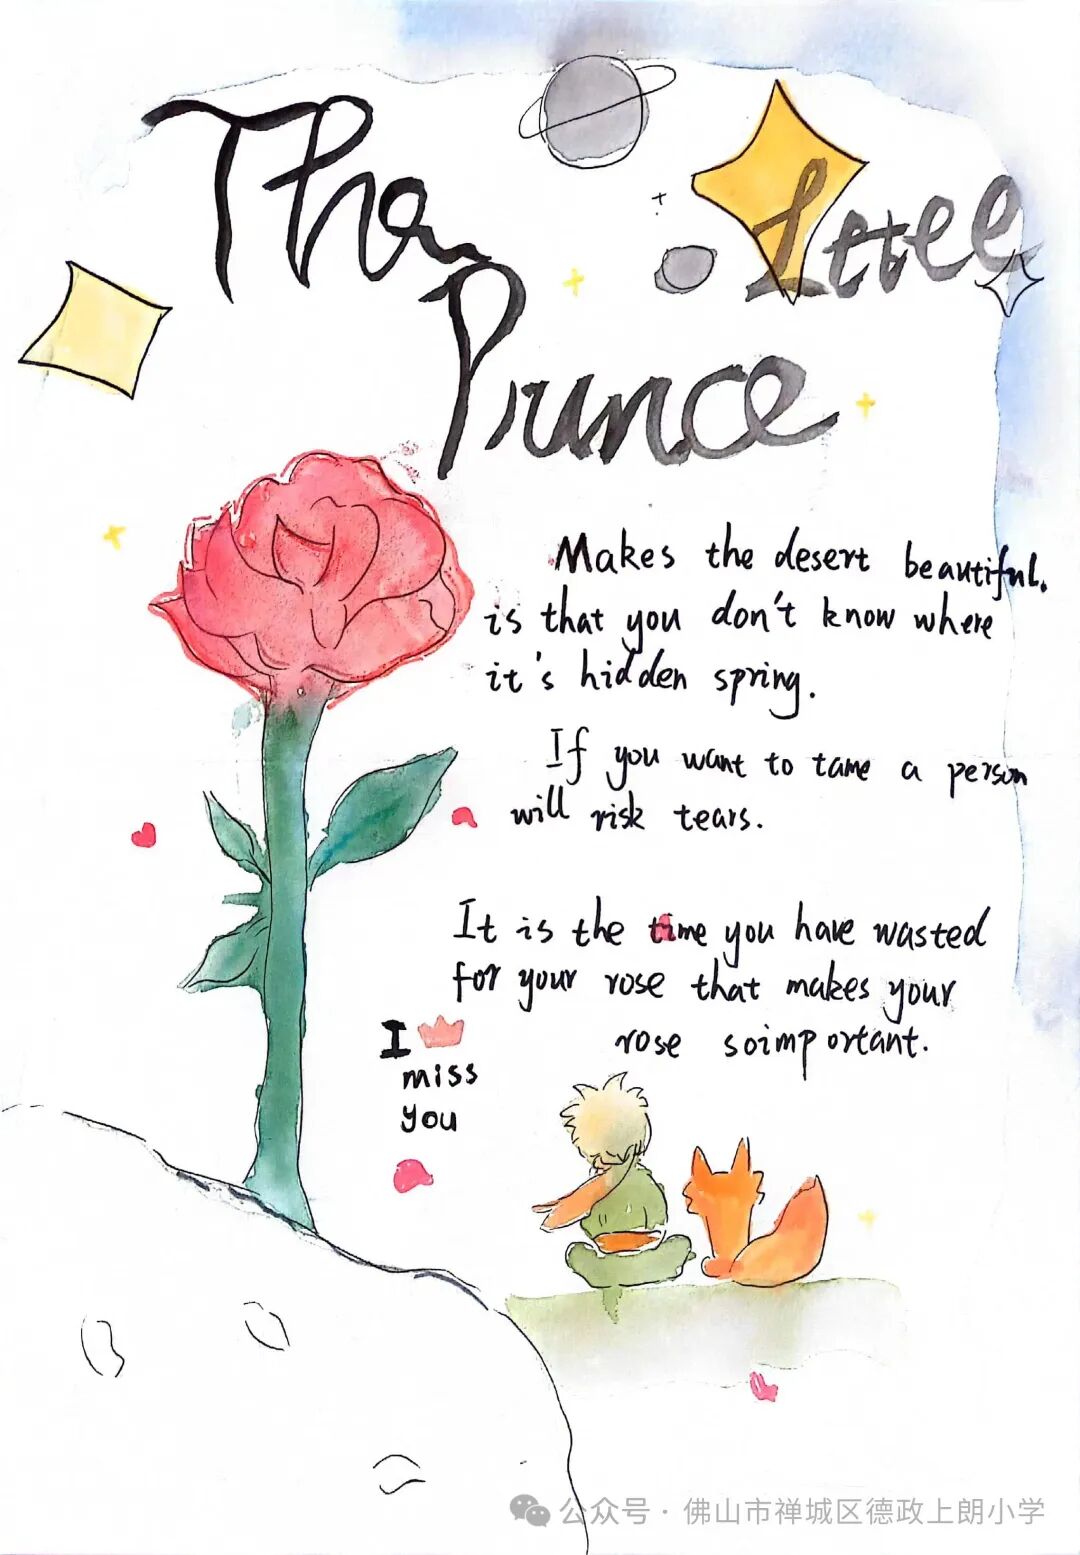 The Little
Prince
Makes the desert beautiful.
is that you don't know where
it's hidden spring.
If you want to tame a person
will risk tears.
It is the time you have wasted
for your rose that makes your
rose soimportant.
I
miss
you
公众号·佛山市禅城区德政上朗小学